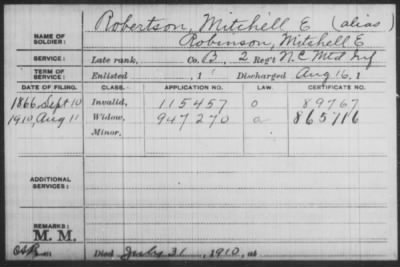 Robertson, Mitchell E (alias)
NAME OF SOLDIER: Robinson, Mitchell E
SERVICE: Late rank, Co. B, 2 Reg't N.C. Mtd Inf
TERM OF SERVICE: Enlisted , 1 Discharged Aug 16, 1
DATE OF FILING. CLASS. APPLICATION NO. LAW. CERTIFICATE NO.
1866, Sept 10 Invalid, 115457 0 89767
1910, Aug 11 Widow, 947270 a 865716
Minor.
ADDITIONAL SERVICES:
REMARKS:
M. M.
Died July 31, 1910, at